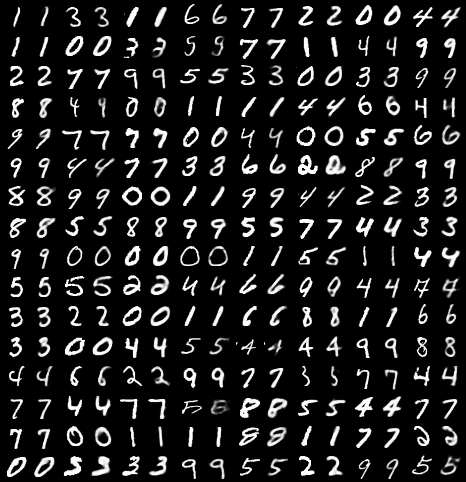 1 1 3 3 1 1 6 6 7 7 2 2 0 0 4 4
1 1 0 0 3 2 5 9 7 7 1 1 4 4 9 9
2 2 7 7 9 9 5 5 3 3 0 0 3 3 9 9
8 8 4 4 0 0 1 1 1 1 4 4 6 6 4 4
9 9 7 7 7 7 0 0 4 4 0 0 5 5 6 6
9 9 4 4 7 7 3 3 6 6 2 2 8 8 9 9
8 8 9 9 0 0 1 1 9 9 4 4 2 2 3 3
8 8 5 5 8 8 9 9 5 5 7 7 4 4 3 3
9 9 0 0 0 0 0 0 1 1 5 5 1 1 4 4
5 5 5 5 2 2 4 4 6 6 9 9 4 4 7 7
3 3 2 2 0 0 1 1 6 6 8 8 1 1 6 6
3 3 0 0 4 4 5 5 4 4 4 4 9 9 8 8
4 4 6 6 2 2 9 9 7 7 3 5 7 7 4 4
7 7 4 4 7 7 5 8 8 5 5 4 4 7 7
7 7 0 0 1 1 1 1 8 8 1 1 7 7 2 2
0 0 5 3 3 3 9 9 5 5 2 2 9 9 5 5